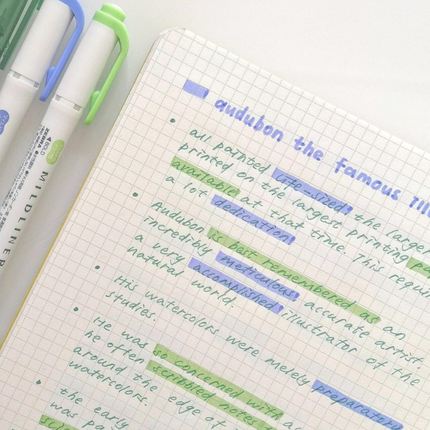 audubon the famous Ill
all painted life-sized: the large
printed on the largest printing pa
available at that time. This requi
a lot dedication!
Audubon is best remembered as an
incredibly meticulous, accurate artist.
a very accomplished illustrator of the
natural world.
His watercolors were merely preparatory
studies.
He was so concerned with ac
he often scribbled notes
around the edge of
watercolors.
the early
was pa
MILDLINER
ZEBRA